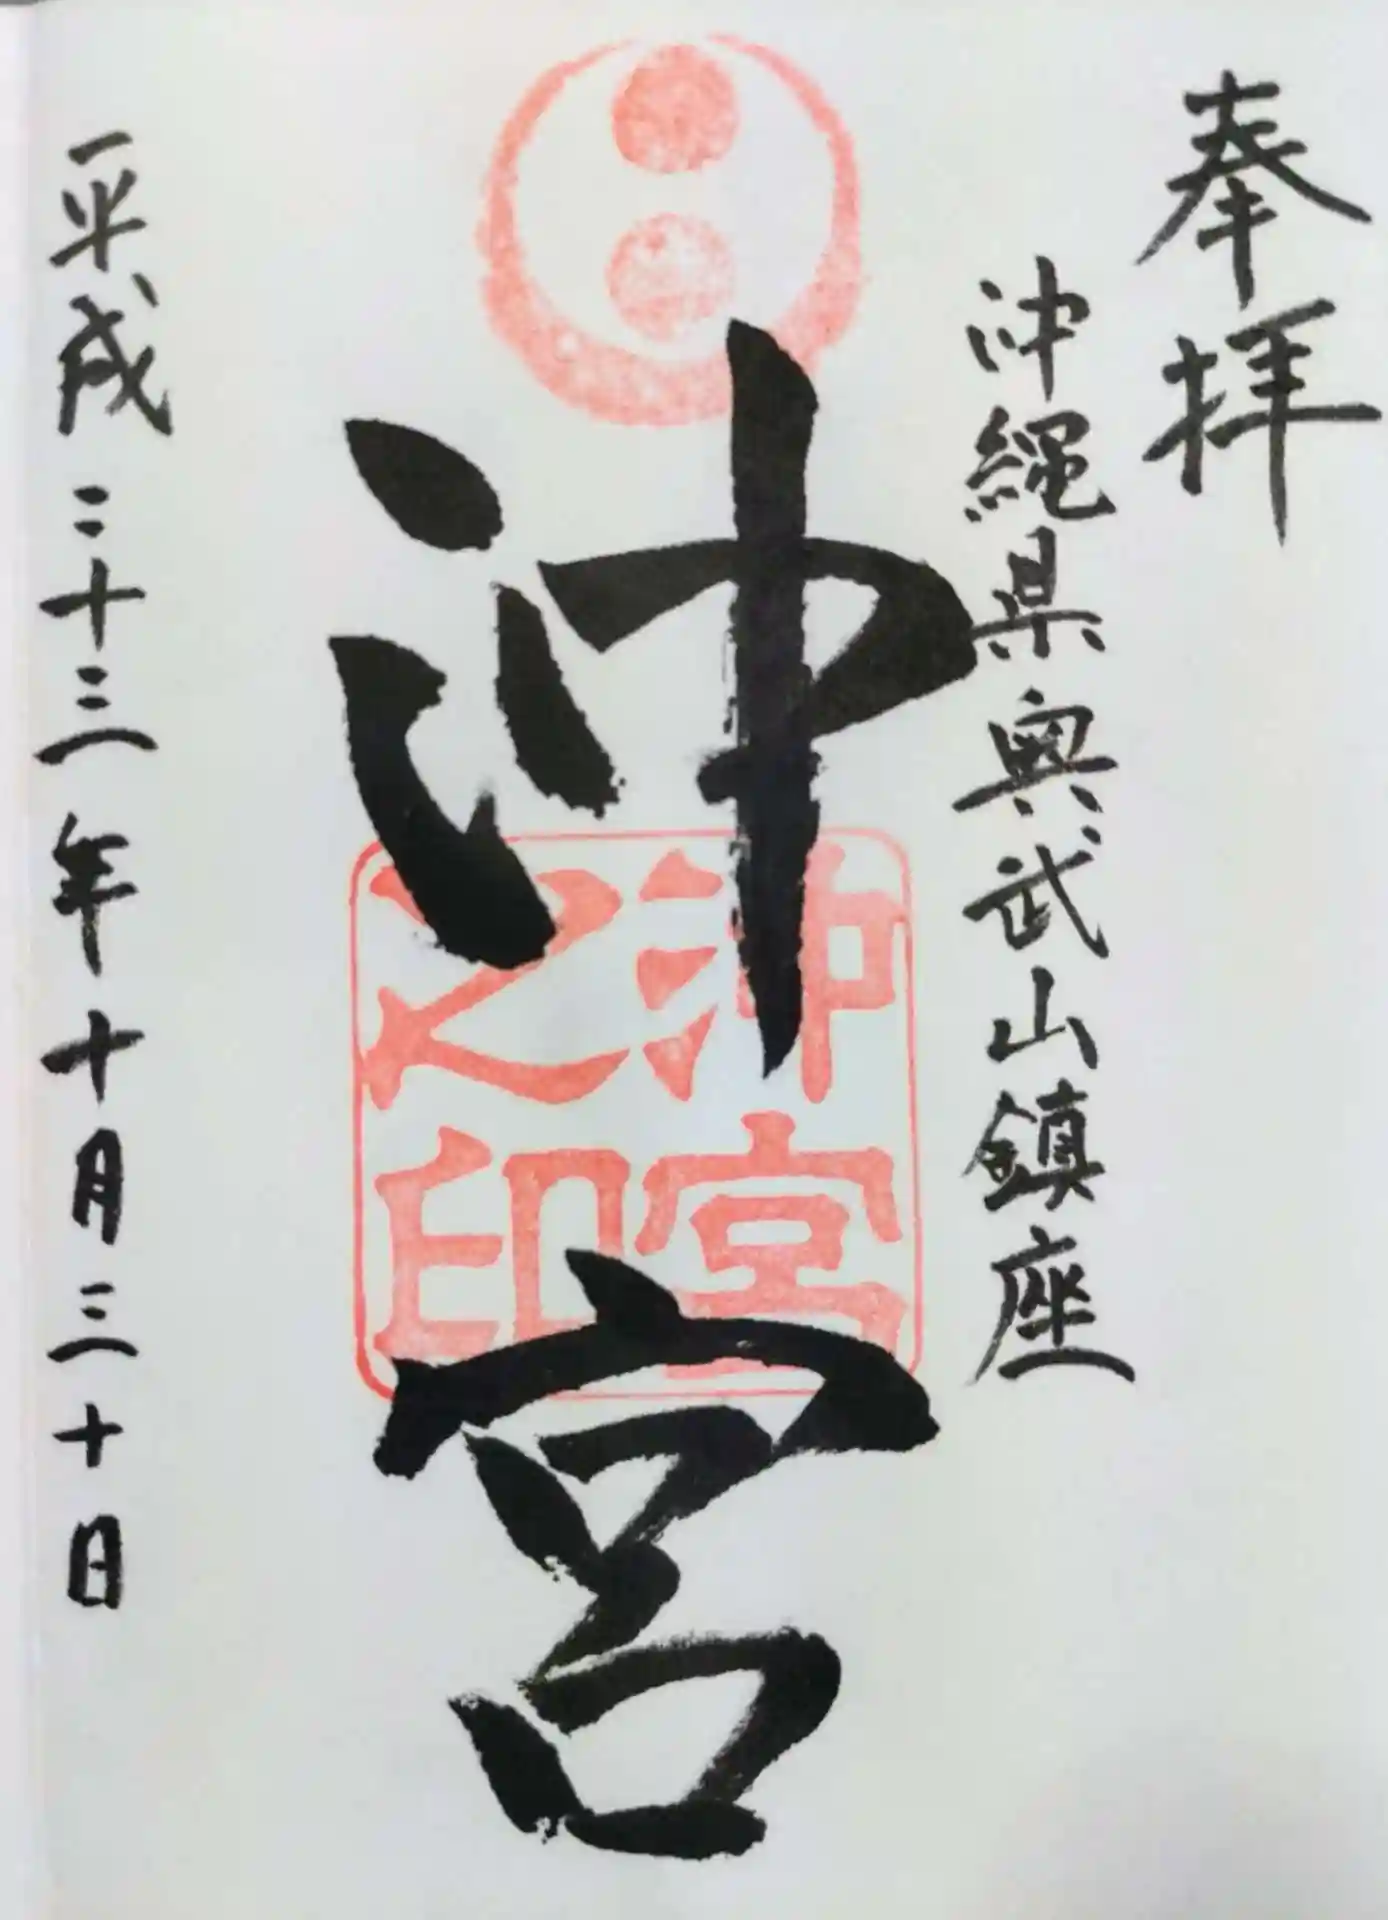 奉拝
沖縄県奥武山鎮座
沖宮
沖宮
之印
平成二十三年十月三十日